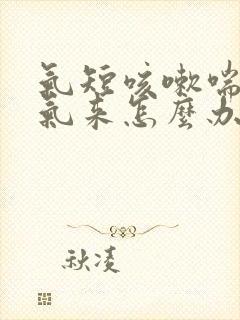 氣短咳嗽喘
氣来怎麼办
秋凌